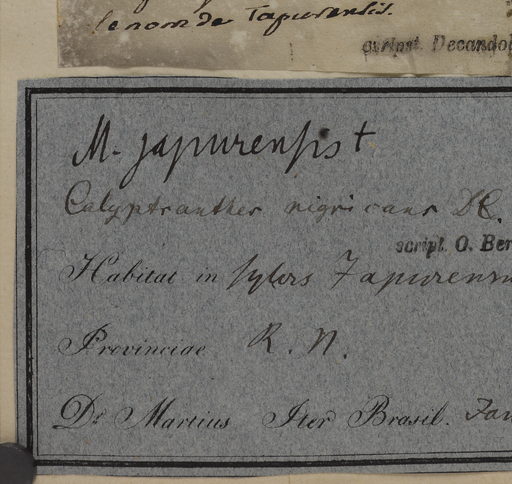 le nom de Tapurensis.
script. Decandol
M. japurensis †
Calyptranthes nigricans DC.
script. O. Ber
Habitat in sylvis Japurens
Provinciae R. N.
Dr Martius Iter Brasil. Jan